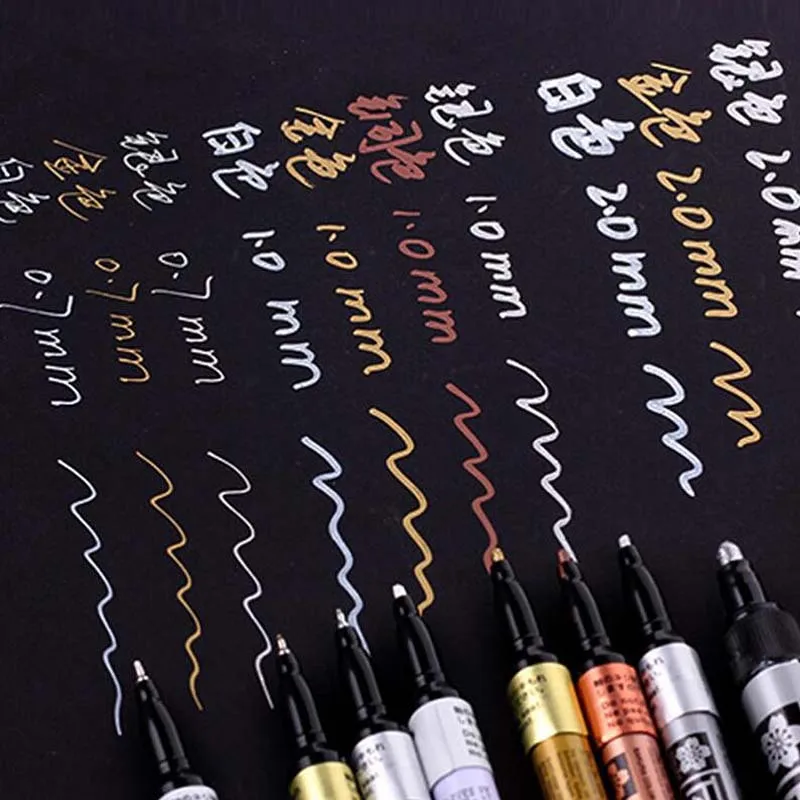 白色 0.7mm
金色 0.7mm
银色 0.7mm
白色 1.0mm
金色 1.0mm
铜色 1.0mm
银色 1.0mm
白色 2.0mm
金色 2.0mm
银色 2.0mm